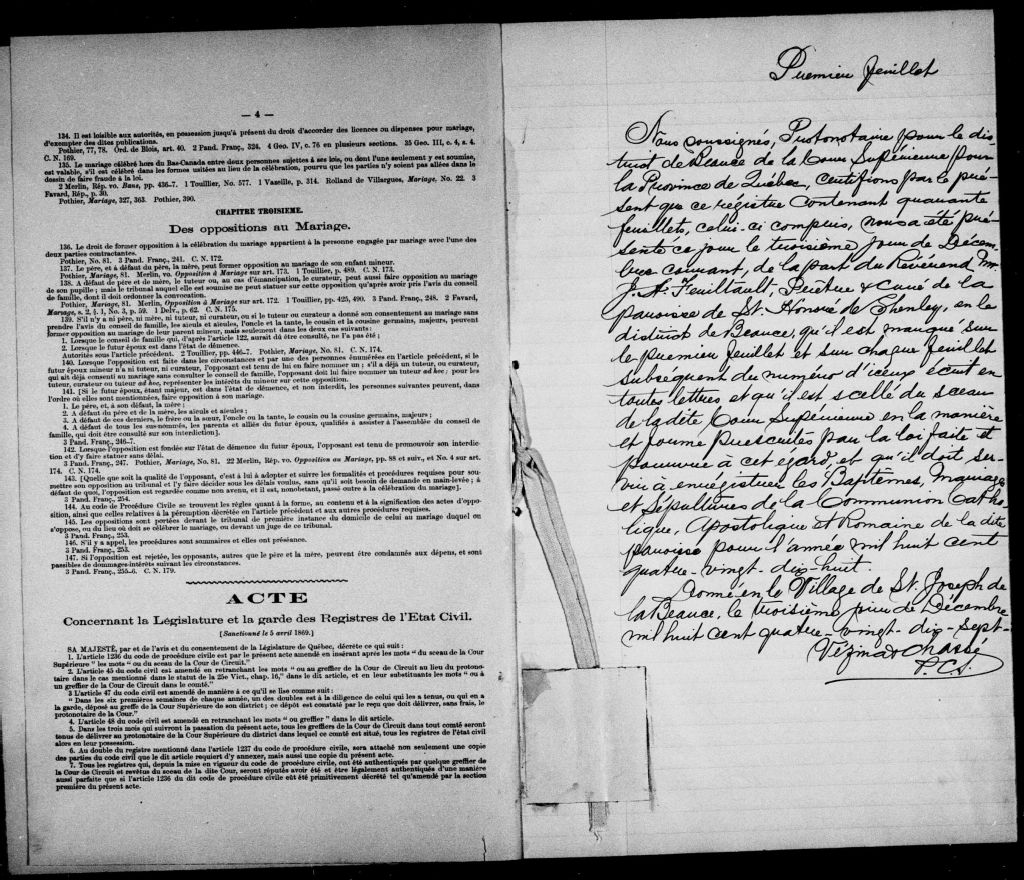 — 4 —
134. Il est loisible aux autorités, en possession jusqu'à présent du droit d'accorder des licences ou dispenses pour mariage,
d'exempter des dites publications.
Pothier, 77, 78. Ord. de Blois, art. 40. 2 Pand. Franç., 324. 4 Geo. IV, c. 76 en plusieurs sections. 35 Geo. III, c. 4, s. 4.
C. N. 169.
135. Le mariage célébré hors du Bas-Canada entre deux personnes sujettes à ses lois, ou dont l'une seulement y est soumise,
est valable, s'il est célébré dans les formes usitées au lieu de la célébration, pourvu que les parties n'y soient pas allées dans le
dessin de faire fraude à la loi.
2 Merlin, Rép. vo. Bans, pp. 436-7. 1 Touillier, No. 577. 1 Vazeille, p. 314. Rolland de Villargues, Mariage, No. 22. 3
Favard, Rép., p. 30.
Pothier, Mariage, 327, 363. Pothier, 390.
CHAPITRE TROISIEME.
Des oppositions au Mariage.
136. Le droit de former opposition à la célébration du mariage appartient à la personne engagée par mariage avec l'une des
deux parties contractantes.
Pothier, No. 81. 3 Pand. Franç., 241. C. N. 172.
137. Le père, et à défaut du père, la mère, peut former opposition au mariage de son enfant mineur.
Pothier, Mariage, 81. Merlin, vo. Opposition à Mariage sur art. 173. 1 Touillier, p. 489. C. N. 173.
138. A défaut de père et de mère, le tuteur, ou, au cas d'émancipation, le curateur, peut aussi faire opposition au mariage
de son pupille; mais le tribunal auquel elle est soumise ne peut statuer sur cette opposition qu'après avoir pris l'avis du conseil
de famille, dont il doit ordonner la convocation.
Pothier, Mariage, 81. Merlin, Opposition à Mariage sur art. 172. 1 Touillier, pp. 425, 490. 3 Pand. Franç., 248. 2 Favard,
Mariage, s. 2, §. 1, No. 3, p. 59. 1 Delv., p. 62. C. N. 175.
139. S'il n'y a ni père, ni mère, ni tuteur, ni curateur, ou si le tuteur ou curateur a donné son consentement au mariage sans
prendre l'avis du conseil de famille, les aïeuls et aïeules, l'oncle et la tante, le cousin et la cousine germains, majeurs, peuvent
former opposition au mariage de leur parent mineur, mais seulement dans les deux cas suivants:
1. Lorsque le conseil de famille qui, d'après l'article 122, aurait dû être consulté, ne l'a pas été;
2. Lorsque le futur époux est dans l'état de démence.
Autorités sous l'article précédent. 2 Touillier, pp. 446-7. Pothier, Mariage, No. 81. C. N. 174.
140. Lorsque l'opposition est faite dans les circonstances et par une des personnes énumérées en l'article précédent, si le
futur époux mineur n'a ni tuteur, ni curateur, l'opposant est tenu de lui en faire nommer un; s'il a déjà un tuteur, ou curateur,
qui ait déjà consenti au mariage sans consulter le conseil de famille, l'opposant doit lui faire nommer un tuteur ad hoc; pour les
tuteur, curateur ou tuteur ad hoc, représenter les intérêts du mineur sur cette opposition.
141. [Si le futur époux, étant majeur, est dans l'état de démence, et non interdit, les personnes suivantes peuvent, dans
l'ordre où elles sont mentionnées, faire opposition à son mariage.
1. Le père, et, à son défaut, la mère;
2. A défaut du père et de la mère, les aïeuls et aïeules;
3. A défaut de ces derniers, le frère ou la sœur, l'oncle ou la tante, le cousin ou la cousine germains, majeurs;
4. A défaut de tous les sus-nommés, les parents et alliés du futur époux, qualifiés à assister à l'assemblée du conseil de
famille, qui doit être consulté sur son interdiction].
3 Pand. Franç., 246-7.
142. Lorsque l'opposition est fondée sur l'état de démence du futur époux, l'opposant est tenu de promouvoir son interdic-
tion et d'y faire statuer sans délai.
3 Pand. Franç., 247. Pothier, Mariage, No. 81. 22 Merlin, Rép. vo. Opposition au Mariage, pp. 88 et suiv., et No. 4 sur art.
174. C. N. 174.
143. [Quelle que soit la qualité de l'opposant, c'est à lui à adopter et suivre les formalités et procédures requises pour sou-
mettre son opposition au tribunal et l'y faire décider sous les délais voulus, sans qu'il soit besoin de demande en main-levée; à
défaut de quoi, l'opposition est regardée comme non avenu, et il est, nonobstant, passé outre à la célébration du mariage].
3 Pand. Franç., 254.
144. Au code de Procédure Civile se trouvent les règles quant à la forme, au contenu et à la signification des actes d'oppo-
sition, ainsi que celles relatives à la péremption décrétée en l'article précédent et aux autres procédures requises.
145. Les oppositions sont portées devant le tribunal de première instance du domicile de celui au mariage duquel on
s'oppose, ou du lieu où doit se célébrer le mariage, ou devant un juge de ce tribunal.
3 Pand. Franç., 253.
146. S'il y a appel, les procédures sont sommaires et elles ont préséance.
3 Pand. Franç., 253.
147. Si l'opposition est rejetée, les opposants, autres que le père et la mère, peuvent être condamnés aux dépens, et sont
passibles de dommages-intérêts suivant les circonstances.
3 Pand. Franç., 255-6. C. N. 179.
ACTE
Concernant la Législature et la garde des Registres de l'Etat Civil.
[Sanctionné le 5 avril 1869.]
SA MAJESTÉ, par et de l'avis et du consentement de la Législature de Québec, décrète ce qui suit:
1. L'article 1236 du code de procédure civile est par le présent acte amendé en insérant après les mots " du sceau de la Cour
Supérieure " les mots " ou du sceau de la Cour de Circuit."
2. L'article 45 du code civil est amendé en retranchant les mots " ou au greffier de la Cour de Circuit au lieu du protono-
taire dans le cas mentionné dans le statut de la 25e Vict., chap. 16," dans le dit article, et en leur substituants les mots " ou à
un greffier de la Cour de Circuit dans le comté."
3 L'article 47 du code civil est amendé de manière à ce qu'il se lise comme suit:
" Dans les six premières semaines de chaque année, un des doubles est à la diligence de celui qui les a tenus, ou qui en a
la garde, déposé au greffe de la Cour Supérieure de son district; ce dépôt est constaté par le reçu que doit délivrer, sans frais, le
protonotaire de la Cour."
4. L'article 48 du code civil est amendé en retranchant les mots " ou greffier " dans le dit article.
5. Dans les trois mois qui suivront la passation du présent acte, tous les greffiers de la Cour de Circuit dans tout comté seront
tenus de délivrer au protonotaire de la Cour Supérieure du district dans lequel ce comté est situé, tous les registres de l'état civil
alors en leur possession.
6. Au double du registre mentionné dans l'article 1237 du code de procédure civile, sera attaché non seulement une copie
des parties du code civil que le dit article requiert d'y annexer, mais aussi une copie du présent acte.
7. Tous les registres qui, depuis la mise en vigueur du code de procédure civile, ont été authentiqués par quelque greffier de
la Cour de Circuit et revêtus du sceau de la dite Cour, seront réputés avoir été et être légalement authentiqués d'une manière
aussi parfaite que si l'article 1236 du dit code de procédure civile eût été primitivement décrété tel qu'amendé par la section
première du présent acte.
Premier feuillet
Nous soussigné, Protonotaire pour le dis-
trict de Beauce de la Cour Supérieure pour
la Province de Québec, certifions par le pré-
sent que ce registre contenant quarante
feuillets, celui-ci compris, nous a été pré-
senté ce jour le troisième jour de Décem-
bre courant, de la part du Révérend Mr.
J. A. Feuiltault, Prêtre & Curé de la
paroisse de St. Honoré de Shenley, en le
district de Beauce, qu'il est marqué sur
le premier feuillet et sur chaque feuillet
subséquent du numéro d'iceux écrit en
toutes lettres et qu'il est scellé du sceau
de la dite Cour Supérieure en la manière
et forme prescrites par la loi faite et
pourvue à cet égard, et qu'il doit ser-
vir à enregistrer les Baptêmes, Mariages
et Sépultures de la Communion Catho-
lique, Apostolique et Romaine de la dite
paroisse pour l'année mil huit cent
quatre-vingt-dix-huit.
Donné en le Village de St. Joseph de
la Beauce, le troisième jour de Décembre
mil huit cent quatre-vingt-dix-sept.
Vézina & Chassé
P. C. S.